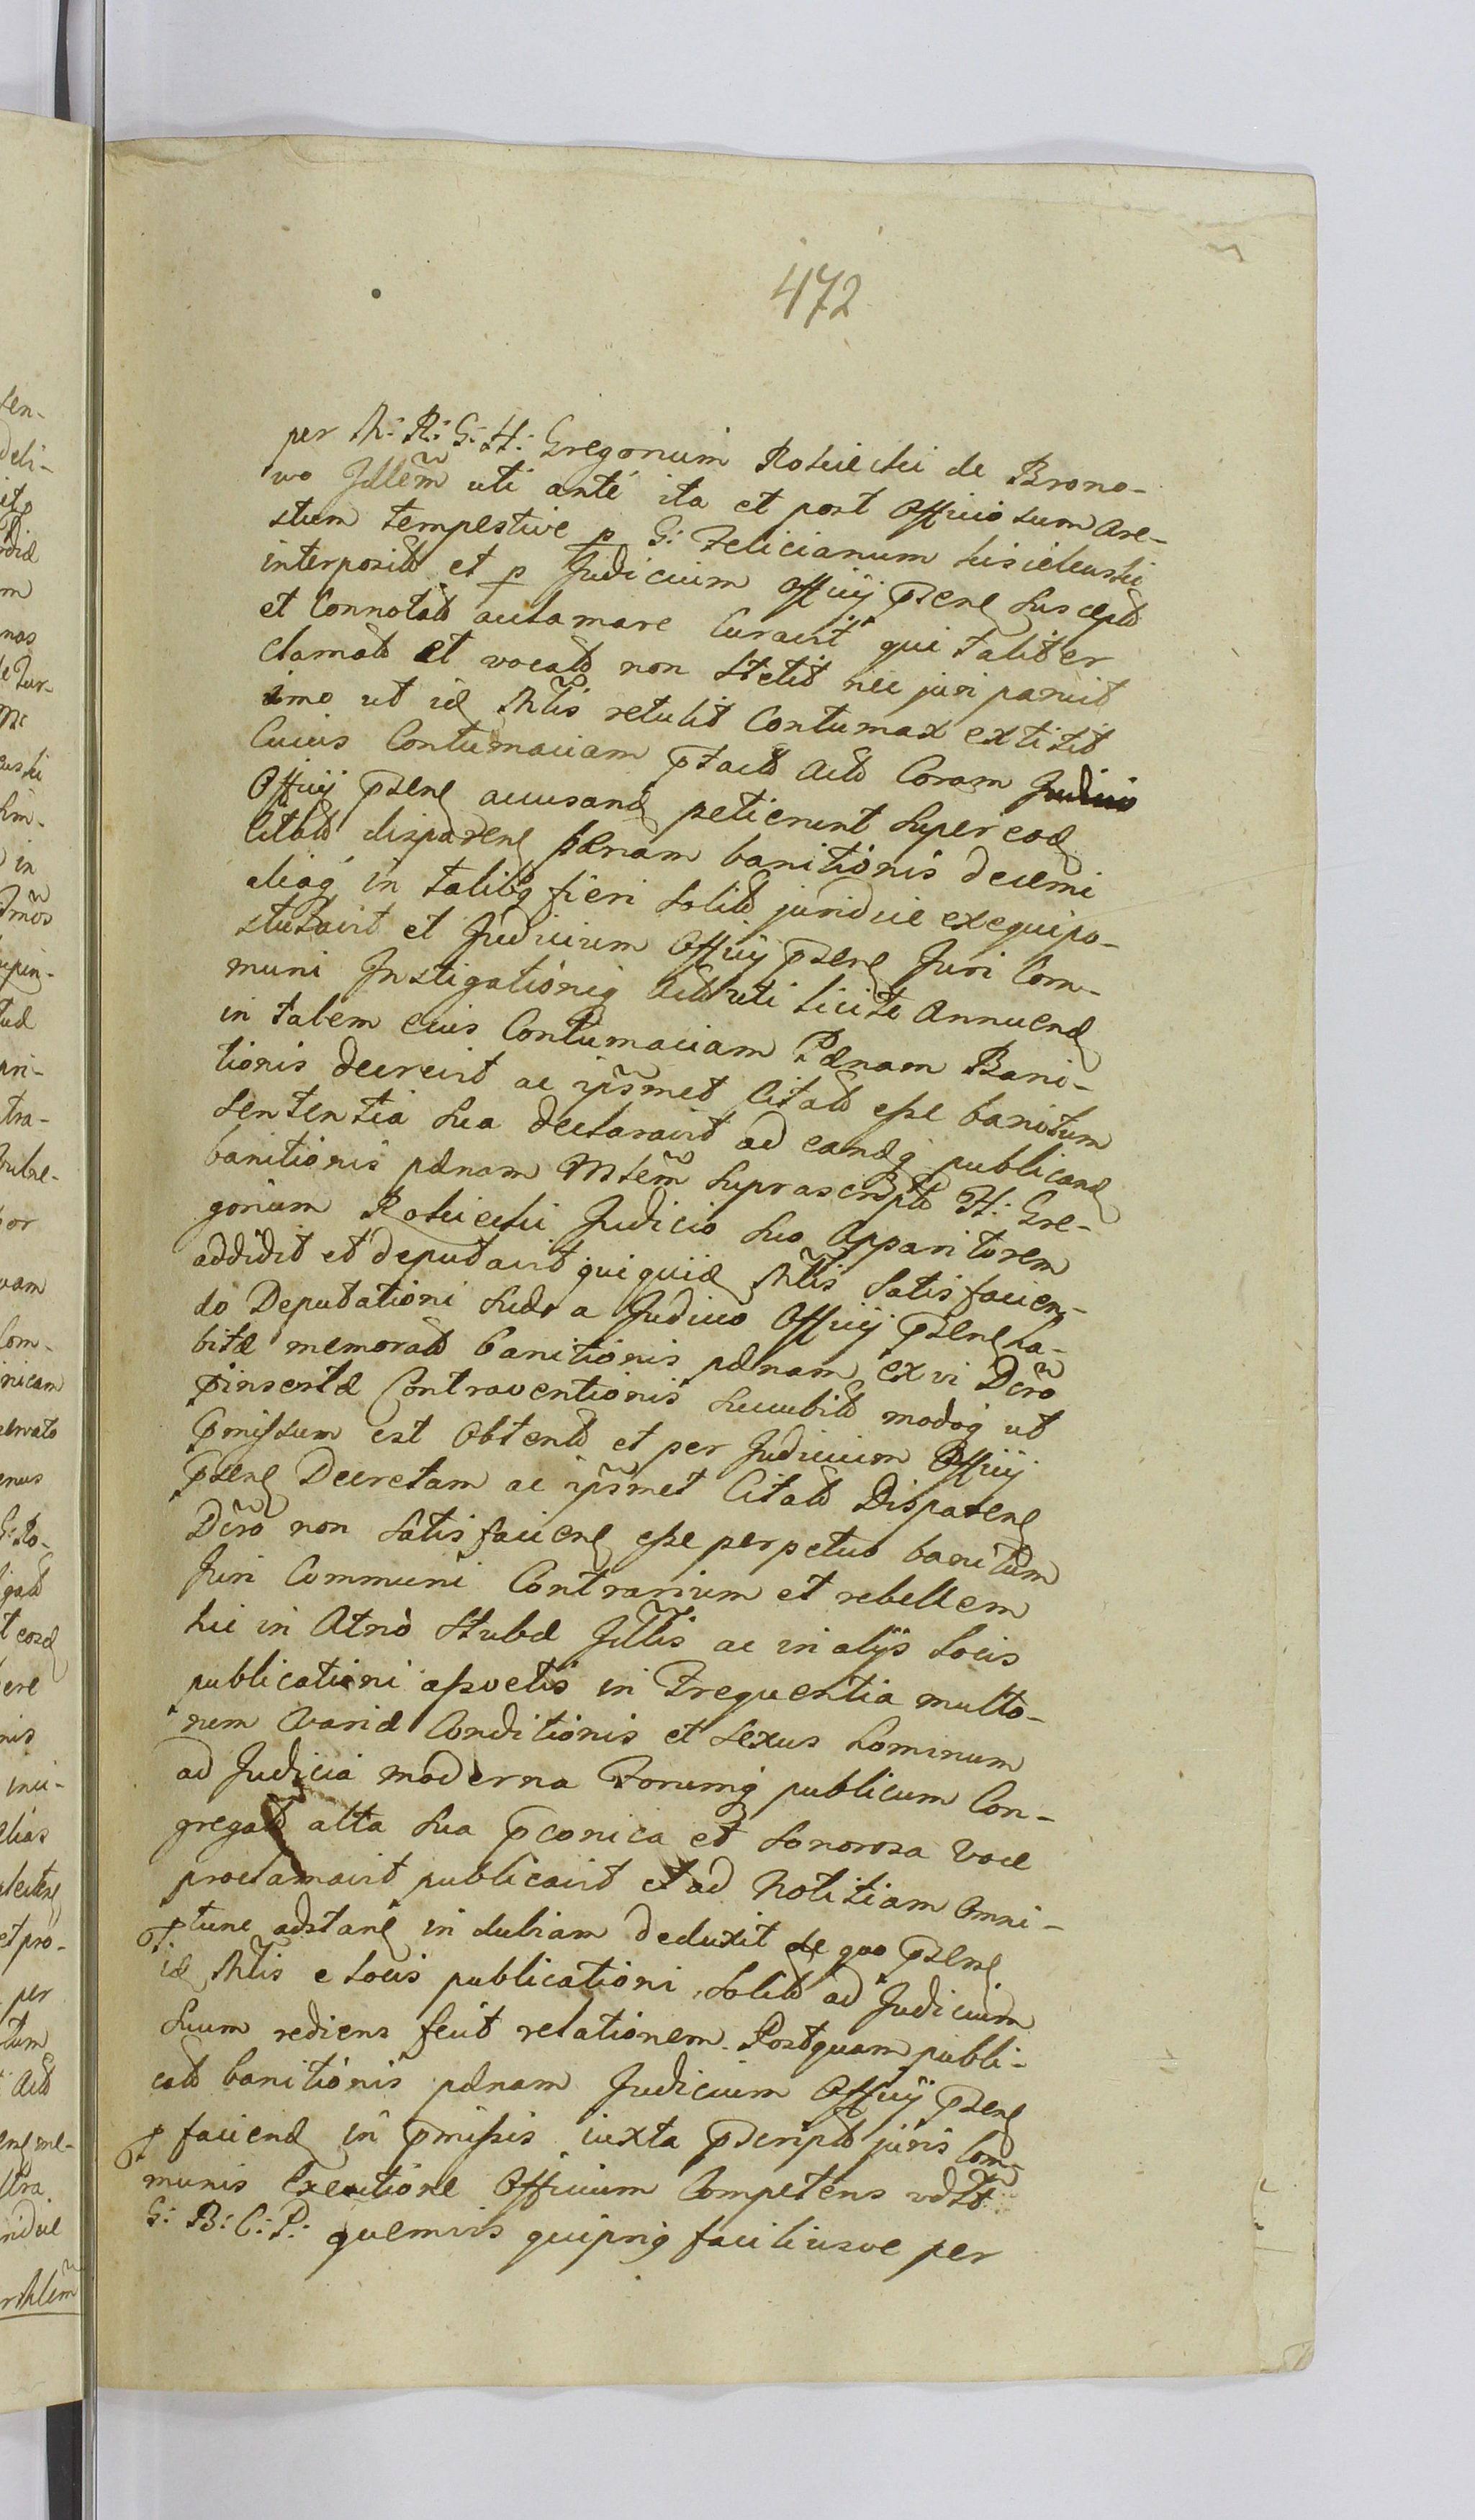 472
per M: R: G: H: Gregorium Rosciecki de Brono-
wo Jllem uti ante ita et post Officiosum Are-
stum tempestive p G: Felicianum Kisielewski
interposit et p Judicium Officij psene suscept
et Connotat acclamare Curavit qui taliter
Clamat et vocat non stetit nec juri paruit
imo ut id Mlis retulit Contumax extitit
Cuius Contumaciam ptact Act Coram Judicio
Officij psene accusand petierunt super eod
Citato disparene pænam banitionis decerni
aliaq in talibq fieri solit juridice exequi po-
stulavit et Judicium Officij psene Juri Com-
muni Jnstigationiq Act uti licite Annuend
in talem eius Contumaciam Pænam Bani-
tionis decrevit ac ipsmet Citat esse banitum
Sententia sua declaravit ad eandq publicand
banitionis pænam Mtem suprascript H: Gre-
gorium Rosciecki Judicio suo Apparitorem
addidit et deputavit qui quid Mlis satisfacien-
do Deputationi suæ a Judicio Officij psene ha-
bitæ memorat banitionis pænam ex vi Dcro
pinsertæ Contraventionis succubit modoq ut
pmissum est Obtent et per Judicium Officij
psene Decretam ac ipsmet Citat Disparene
Dcro non satisfaciene esse perpetuo banitum
Juri Communi Contrarium et rebellem
hic in Atrio Stubæ Jllis ac in alijs locis
publicationi assvetis in Frequentia multo-
rum Variæ Conditionis et sexus hominum
ad Judicia moderna Forumq publicum Con-
gregat alta sua pconica et sonorosa Voce
proclamavit publicavit et ad Notitiam Omni-
tunc adstane in dubiam deduxit de quo psene
id Mlis e locis publicationi solit ad Judicium
suum rediens fecit relationem. Postquam publi-
cat banitionis pænam Judicium Officij psene
p faciend in pmissis iuxta pscript juris Com-
munis Executione Officium Competens vdlt
G: B: C: P: quemvis quipriq faciliusve per